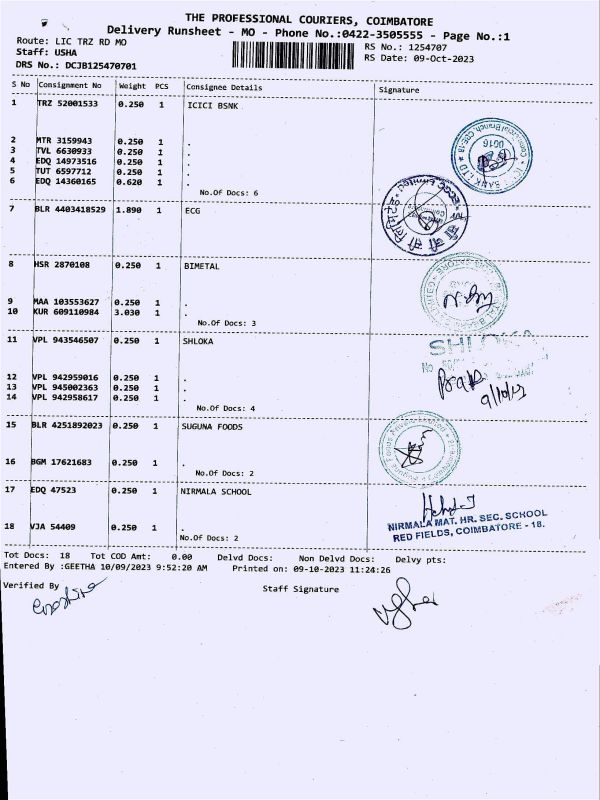 THE PROFESSIONAL COURIERS, COIMBATORE
Delivery Runsheet - MO - Phone No.:0422-3505555 - Page No.:1
Route: LIC TRZ RD MO
RS No.: 1254707
Staff: USHA
RS Date: 09-Oct-2023
DRS No.: DCJB125470701
S No Consignment No Weight PCS Consignee Details Signature
1 TRZ 52001533 0.250 1 ICICI BSNK
2 MTR 3159943 0.250 1 .
3 TVL 6630933 0.250 1 .
4 EDQ 14973516 0.250 1 .
5 TUT 6597712 0.250 1 .
6 EDQ 14360165 0.620 1 .
No.Of Docs: 6
7 BLR 4403418529 1.890 1 ECG
8 HSR 2870108 0.250 1 BIMETAL
9 MAA 103553627 0.250 1 .
10 KUR 609110984 3.030 1 .
No.Of Docs: 3
11 VPL 943546507 0.250 1 SHLOKA
SHLOKA
12 VPL 942959016 0.250 1 .
13 VPL 945002363 0.250 1 .
14 VPL 942958617 0.250 1 .
No.Of Docs: 4
15 BLR 4251892023 0.250 1 SUGUNA FOODS
16 BGM 17621683 0.250 1 .
No.Of Docs: 2
17 EDQ 47523 0.250 1 NIRMALA SCHOOL
NIRMALA MAT. HR. SEC. SCHOOL
RED FIELDS, COIMBATORE - 18.
18 VJA 54409 0.250 1 .
No.Of Docs: 2
Tot Docs: 18 Tot COD Amt: 0.00 Delvd Docs: Non Delvd Docs: Delvy pts:
Entered By :GEETHA 10/09/2023 9:52:20 AM Printed on: 09-10-2023 11:24:26
Verified By
Staff Signature